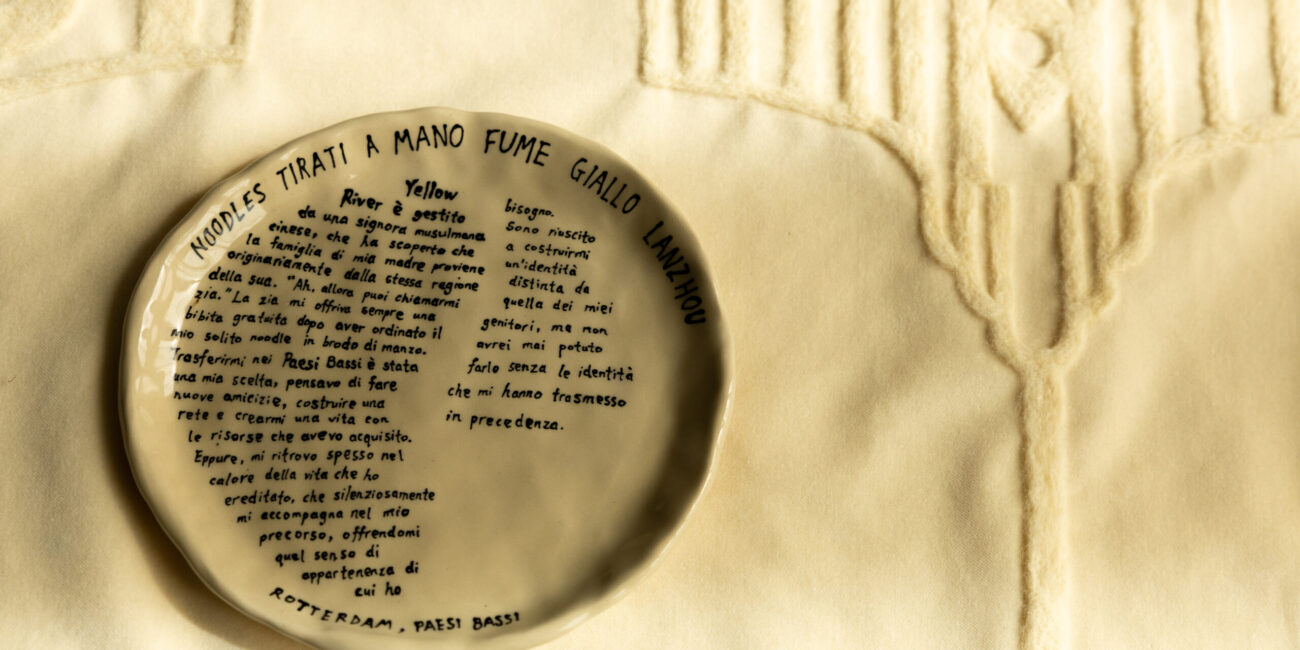 NOODLES TIRATI A MANO FUME GIALLO LANZHOU
Yellow
River è gestito
da una signora musulmana
cinese, che ha scoperto che
la famiglia di mia madre proviene
originariamente dalla stessa ragione
della sua. "Ah, allora puoi chiamarmi
zia." La zia mi offriva sempre una
bibita gratuita dopo aver ordinato il
mio solito noodle in brodo di manzo.
Trasferirmi nei Paesi Bassi è stata
una mia scelta, pensavo di fare
nuove amicizie, costruire una
rete e crearmi una vita con
le risorse che avevo acquisito.
Eppure, mi ritrovo spesso nel
calore della vita che ho
ereditato, che silenziosamente
mi accompagna nel mio
percorso, offrendomi
quel senso di
appartenenza di
cui ho
bisogno.
Sono riuscito
a costruirmi
un'identità
distinta da
quella dei miei
genitori, ma non
avrei mai potuto
farlo senza le identità
che mi hanno trasmesso
in precedenza.
ROTTERDAM, PAESI BASSI